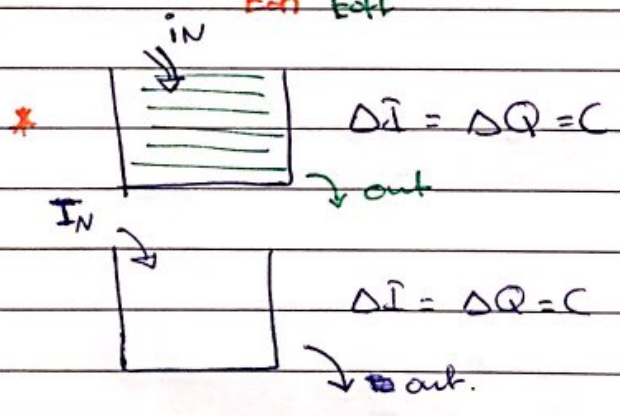 iN
* ΔI = ΔQ = C
out
IN
ΔI = ΔQ = C
out.